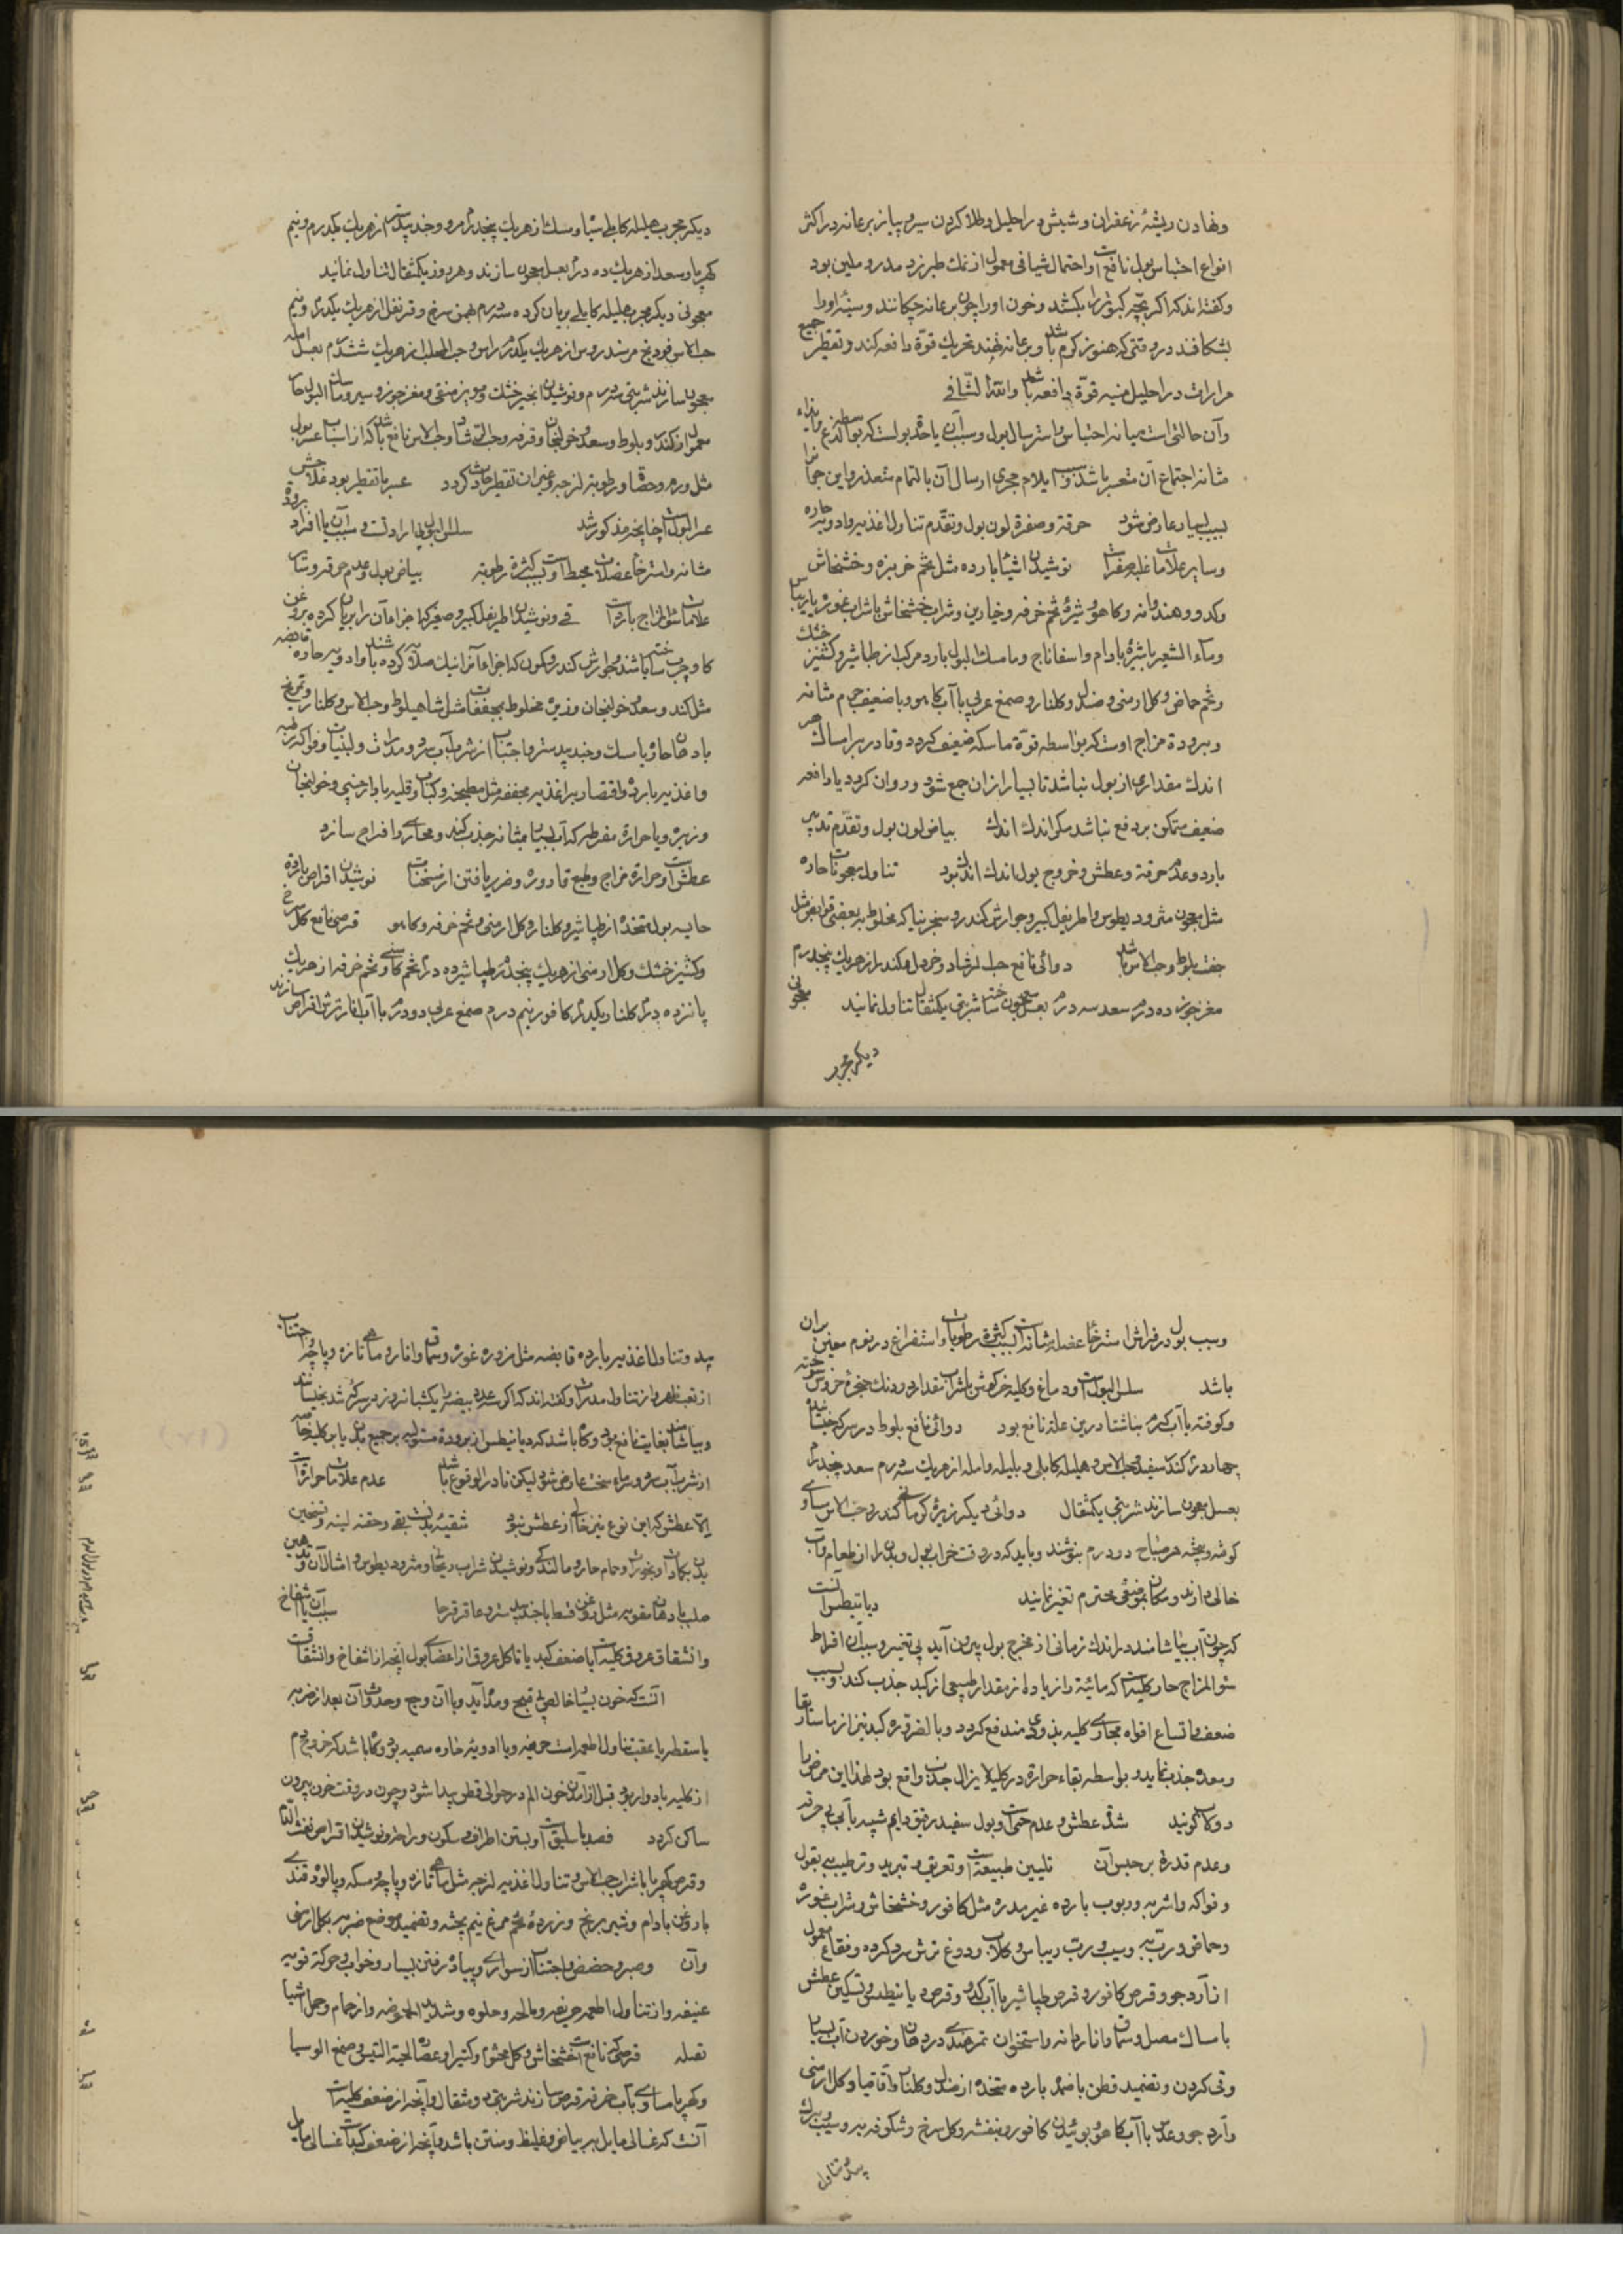 ونهادن ریشهٔ زعفران و شپش در احلیل و طلا کردن سیر و پیاز بر عانه در اکثر
انواع احتباس بول نافع است و احتمال شیافی معمول از نمک طبرزد مدر و ملین بود
وکفته‌اند که اکر بچّه کبوتر را بکشند و خون او را چون بر عانه چکانند و سینهٔ او را
بشکافند در وقتی که هنوز کرم باشد و بر عانه نهند تحریک قوّة دافعه کند و تقطیر جمیع
مرارات در احلیل منبه قوّة دافعه باشد والله الشّافی
وآن حالتی است میانه احتباس و استرسال بول و سبب آن یا حدّة بولست که بواسطه لذع و ایذاء
مثانه اجتماع آن متعسر باشد و بسبب ایلام مجری ارسال آن بالتمام متعذر و این جوانرا
بسبب بسیار عارض شود حرقة و صفرة لون بول و تقدّم تناول اغذیه و ادویه حاره
وسایر علامات غلبه صفراست نوشیدن اشیاء بارده مثل تخم خربزه و خشخاش
وکدو و هندوانه و کاهو و شیرهٔ تخم خرفه و خیارین و شراب خشخاش یا شراب غوره یا ریباس
وماء الشعیر با شیرهٔ بادام و اسفاناج و ماسک البول بارد مرکب از طباشیر و کشنیز خشک
وتخم حماض و کل ارمنی و صندل و کلنار و صمغ عربی با آب کاهو و یا ضعیف جرم مثانه
وبرودة مزاج اوست که بواسطه قوّة ماسکه ضعیف کردد و قادر بر امساک هر
اندک مقداری از بول نباشد تا بسیار از ان جمع شود و روان کردد یا دافعه
ضعیف متمکن بر دفع نباشد مکر اندک اندک بیاض لون بول و تقدّم تدبیر
بارد و عدم حرقة و عطش و خروج بول اندک اندک بود تناول معجونات حاره
مثل معجون مثرودیطوس و اطریفل کبیر و جوارش کندر و سنجرنیا که مخلوط به بعضی قوابض مثل
جفت بلوط و حب الاس باشد دوائی نافع حب الرشاد و خردل و کندر از هریک پنجدرم
مغز جوز ده درم سعد سه درم بعسل معجون ساخته شربتی یکمثقال تناول نمانید معجونی
دیکر مجرب
دیکر مجرب هلیله کابلی سیاه و سک از هریک پنجدرم مر و جندبیدستر از هریک یکدرم و نیم
کهربا و سعد از هریک ده درم بعسل معجون سازند و هر روز یکمثقال تناول نمانید
معجونی دیکر مجرب هلیله کابلی بریان کرده سه درم بهمن سرخ و قرنفل از هریک یکدرم و نیم
حب الاس فودنج مر سندروس از هریک یکدرم راسن و حب المحلب از هریک ششدرم بعسل امله
معجون سازند شربتی سه درم و نوشیدن انجیر خشک و مویز منقی و مغز جوز و سیر و ماسک البول حار
معمول از کندر و بلوط و سعد و خولنجان و قرفه و حب الرشاد و حب الاس نافع باشد که از اسباب عسر بول
مثل ورم و حصاة و رطوبة لزجه و غیر ان تقطیر حادث کردد عسر با تقطیر بود علاجش
عسر البولست چنانچه مذکور شد سلس البول بی ارادتست و سبب آن یا افراط برودة
مثانه و استرخاء عضلات محیط است بسبب کثرة رطوبة بیاض بول و عدم حرقه و سایر
علامات سوء المزاج باردست قی و نوشیدن اطریفل کبیر و صغیر که اجزاء آن را بریان کرده بروغن
کاو چرب ساخته باشند و جوارش کندر و کمون که اجزاء آنرا نیک صلایه کرده باشند و ادویه حاره قابضه
مثل کندر و سعد و خولنجان و زیره مخلوط بمجففات مثل شاهبلوط و حب الاس و کلنار و تمریخ
بادهان حاره با سک و جندبیدستر و اجتناب از شرب آب سرد و مدرات و لبنیات و فواکه رطبه
واغذیه بارده و اقتصار بر اغذیه مجففه مثل مطبخنه و کباب و قلیه با دارچینی و خولنجان
وزیره و یا حرارة مفرطه که آب بسیار بمثانه جذب کند و مجاری را فراخ سازد
عطش است و حرارة مزاج و طبع قاروره و ضرر یافتن از مسخنات نوشیدن اقراص بارده
حابسه بول متخذ از طباشیر و کلنار و کل ارمنی و تخم خرفه و کاهو قرصی نافع کل سرخ
وکشنیز خشک و کل ارمنی از هریک پنجدرم طباشیر ده درم تخم کاسنی و تخم خرفه از هریک
پانزده درم کلنار یکدرم کافور نیم درم صمغ عربی دو درم با آب انار ترش اقراص سازند
وسبب بول در فراش استرخاء عضله مثانه است بسبب کثرة رطوبات و استغراق در نوم معین بران
باشد سلس البولست و دماغ و کلیه خرکوش با شراب بمقدار دو دنک حنجرهٔ خروس سوخته
وکوفته با آب کرم بناشتا درین علة نافع بود دوائی نافع بلوط در سرکه خیسانیده
چهار درم کندر سفید و حب الاس و هلیله کابلی و بلیله و امله از هریک سه درم سعد چندرم
بعسل معجون سازند شربتی یکمثقال دوائی دیکر زیره کرمانی کندر و حب الاس مساوی
کوفته و بیخته هر صباح دو درم بنوشند و باید که در وقت خواب بول و بدن را از طعام و آب
خالی دارند و مکان بموضعی محترم تغیر نمایند دیابیطس آنست
که چون آب بیاشامند در اندک زمانی از مخرج بول بیرون آید بی تغییر و سبب آن افراط
سوء المزاج حار کلیه است که مائیة را زیاده از مقدار طبیعی از کبد جذب کند و بسبب
ضعف و اتساع افواه مجاری کلیه بزودی مندفع کردد و بالضرورة کبد نیز از ماساریقا
ومعده جذب نماید و بواسطه بقاء حرارة در کلیه لایزال جذب واقع بود لهذا این مرض را
دولاب کویند شدة عطش و عدم حمی است و بول سفید رقیق دایم شبیه بآب بی حرقه
وعدم قدرة بر حبس آن تلیین طبیعت است و تعریق و تبرید و ترطیب ببقول
وفواکه و اشربه و ربوب بارده غیر مدره مثل کافور و خشخاش و شراب غوره
وحماض و رب به و سیب و رب ریباس و کلاب و دوغ ترش سرد کرده و فقاع معمول
از آرد جو و قرص کافور و قرص طباشیر با آب کدو و قرص دیابیطس و تسکین عطش
بامساک مصل و سماق و اناردانه و استخوان تمرهندی در دهان و خوردن آب بسیار
وقی کردن و تضمید قطن باضمدهٔ بارده متخذ از صندل و کلنار و اقاقیا و کل ارمنی
وآرد جو و عدس با آب کاهو و بوئیدن کافور و بنفشه و کل سرخ و شکوفه به و سیب و برک
بید و تناول
بید و تناول اغذیه بارده قابضه مثل مزوره غوره و سماق و انار و ماهی تازه و پاچه و اجتناب
از تعب و حرارت و از تناول مدرات و کفته‌اند که اکر سه عدد بیضه را یکشبانه روز در سرکه تند بخیسانند
وبیاشامند بغایت نافع بود و کاه باشد که دیابیطس از برودة مستولیه بر جمیع بدن یا بر کلیه خاصه
از شرب آب سرد و سرماء سخت عارض شود لیکن نادر الوقوع باشد عدم علامات حرارتست
الا عطش که این نوع نیز خالی از عطش نبود تنقیهٔ بدنست بقی و حقنه لینه و تسخین
بدن بکمادات و بخورات و حمام حار و مالیدن و نوشیدن شراب ریحانی و مثرودیطوس و امثال آن و تدهین
صلب بادهان مقویه مثل روغن قسط با جندبیدستر و عاقرقرحا سبب آن یا انفتاح
وانشقاق عروق کلیه است یا ضعف کبد یا تاکل عروق از اعضاء بول آنچه از انفتاح و انشقاقست
آنست که خون بسیار خالص بی قبح و مدّة آید و با آن وجع و حدوث آن بعد از ضربه
یا سقطه یا عقب تناول اطعمه حریفه و یا ادویه حاره سمیه بود و کاه باشد که خروج دم
از کلیه بادوار بود و قبل از آمدن خون الم در حوالی قطن پیدا شود و چون در وقت خون بیرون
ساکن کردد فصد باسلیق است و بستن اطراف و سکون و راحة و نوشیدن اقراص نفث الدم
وقرص کهربا با شراب حب الاس و تناول اغذیه لزجه مثل ماهی تازه و پاچه و مسکه و پالوده قندی
با روغن بادام و شیر برنج و زردهٔ تخم مرغ نیم پخته و تضمید موضع ضربه بکل ارمنی
وآن وصبر و حضض و اجتناب از سواری و پیاده رفتن بسیار و خواب و حرکة قویه
عنیفه و از تناول اطعمه حریفه و مالحه و حلوه و شدید الحموضه و از حمام و حمل اشیا
ثقیله قرصی که نافع است خشخاش و کل مختوم و کتیرا و عصاره لحیة التیس و صمغ الوسیا
وکهربا مساوی بآب خرفه قرص سازند شربتی دو مثقال و آنچه از ضعف کلیه است
آنست که غسالی مایل به بیاض و غلیظ و منتن باشد و آنچه از ضعف کبدست غسالی مایل